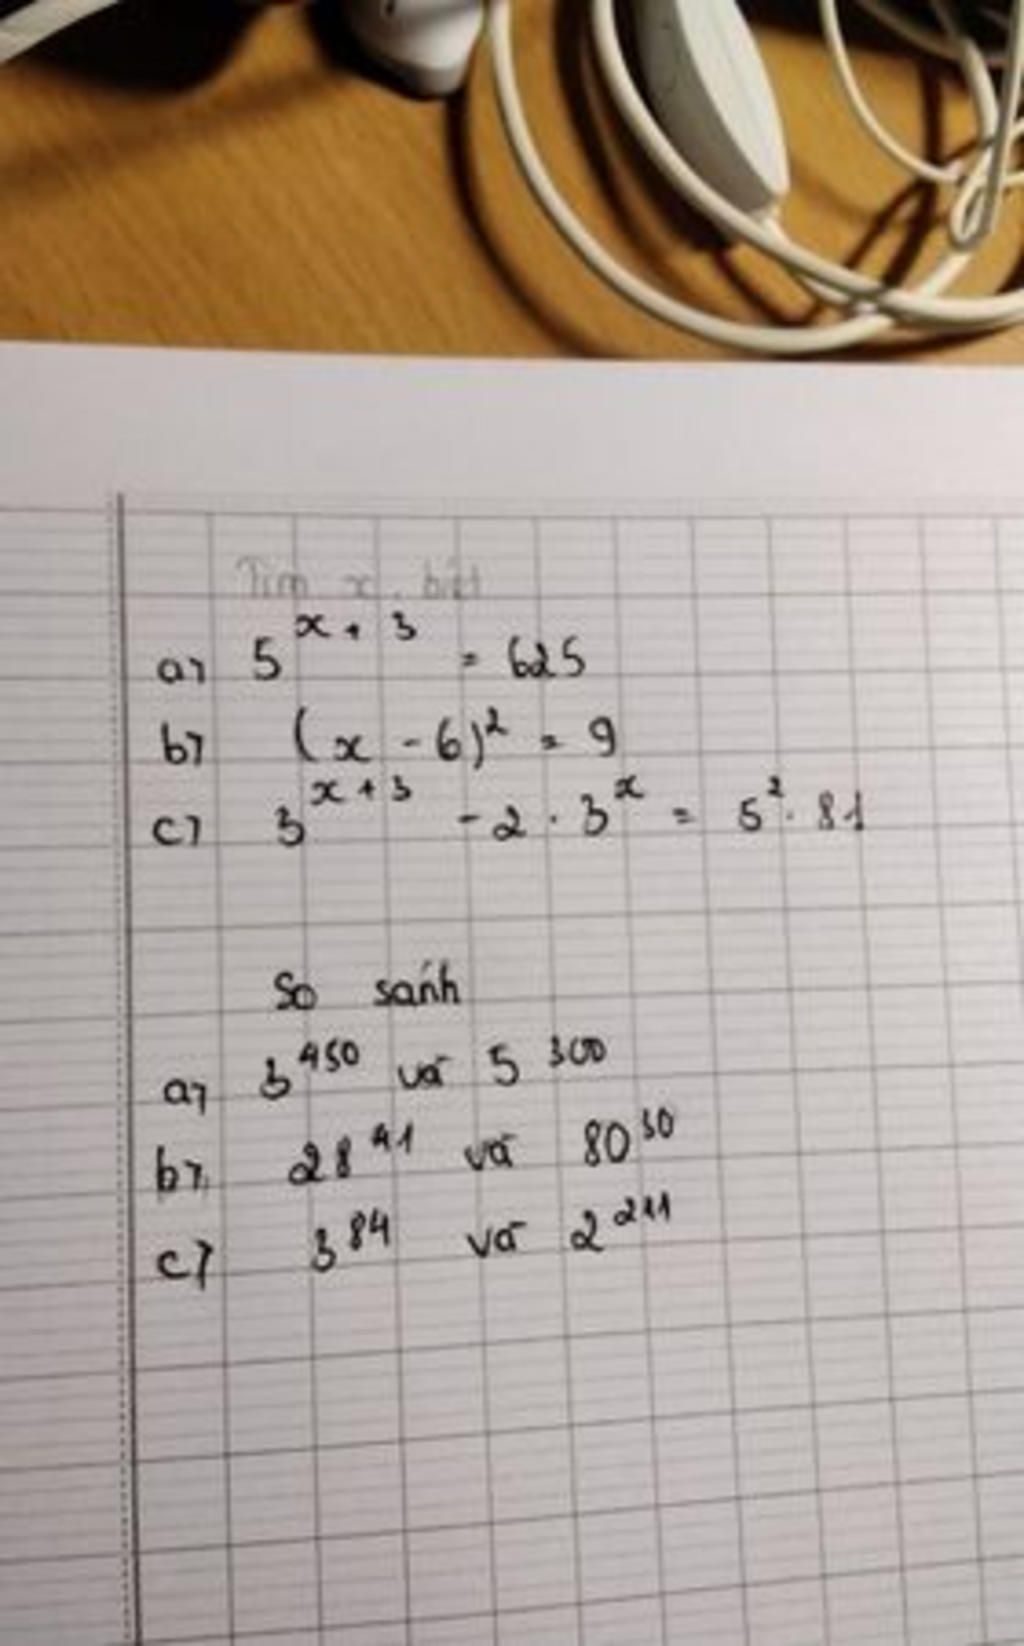 Tìm x, biết
a) 5^{x+3} = 625
b) (x - 6)² = 9
c) 3^{x+3} - 2 . 3^x = 5² . 81
So sánh
a) 3^{450} và 5^{300}
b) 28^{41} và 80^{30}
c) 3^{84} và 2^{211}